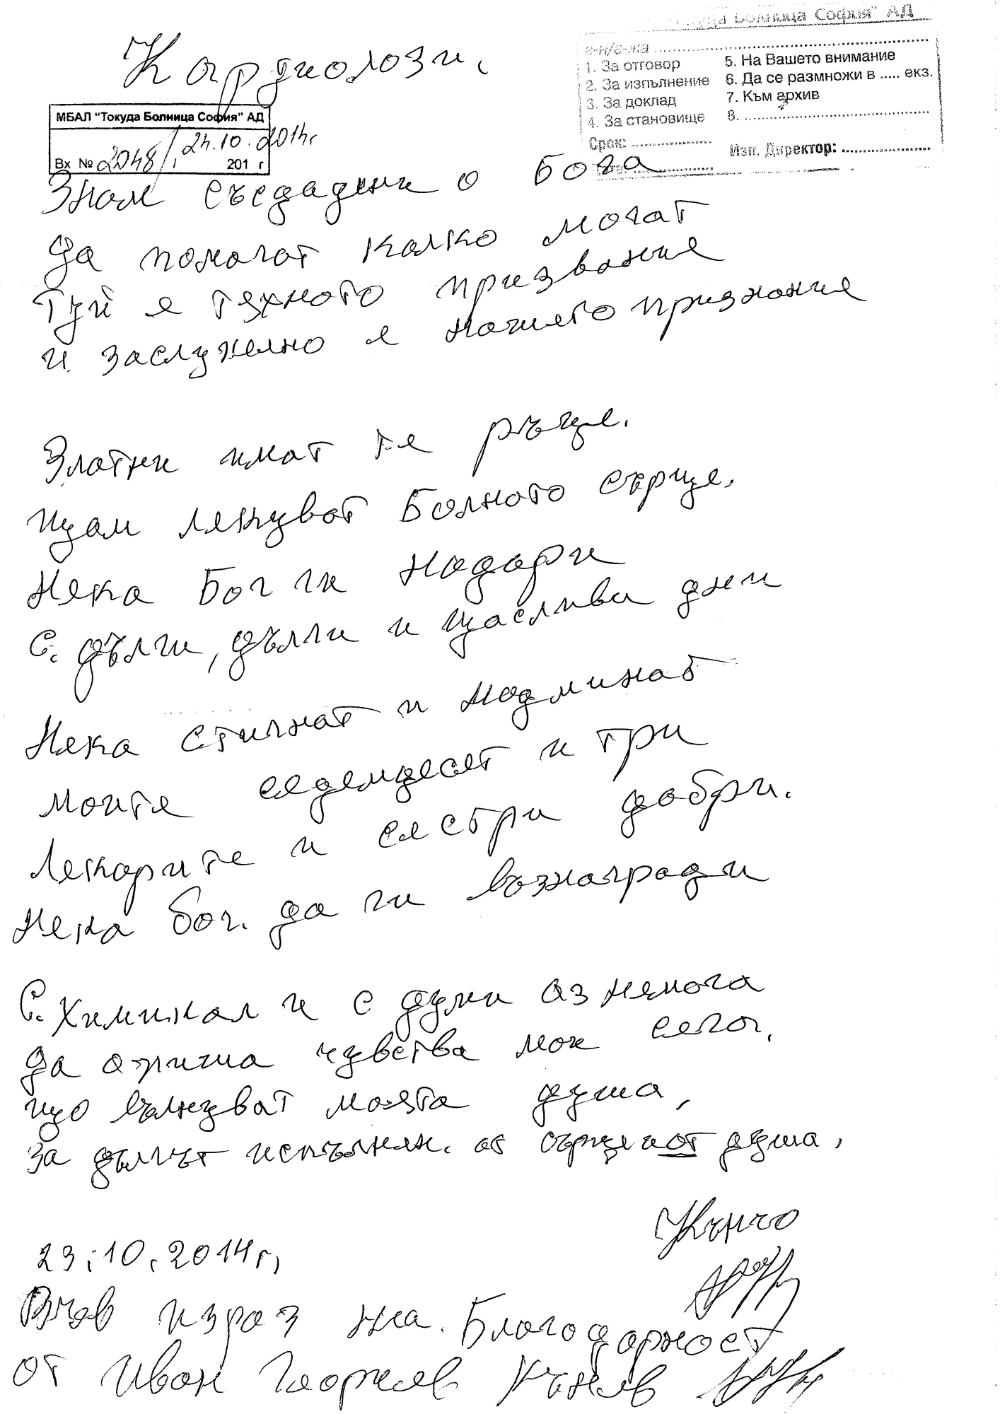 Кардиолози.
"Токуда Болница София" АД
г-н/г-жа
1. За отговор
2. За изпълнение
3. За доклад
4. За становище
Срок:
5. На Вашето внимание
6. Да се размножи в ..... екз.
7. Към архив
8.
Изп. Директор:
МБАЛ "Токуда Болница София" АД
Вх № 2048/24.10.2014г
201 г
Знам създадени о Бога
да помагат колко могат
туй е тяхното призвание
и заслужено е нашето признание
Златни имат те ръце.
щам лекуват Болното сърце.
Нека Бог ги надари
С. дълги, дълги и щасливи дни
Нека стигнат и надминат
моите седемдесет и три
Лекарите и сестри добри.
Нека бог. да ги възнагради
С. химикал и с думи аз немога
да опиша чувства мои сега.
що вълнуват моята душа,
за дългът изпълнен. от сърце и от душа.
Кънчо
23.10.2014г.
израз на. Благодарност
от Иван Георгиев Кънев